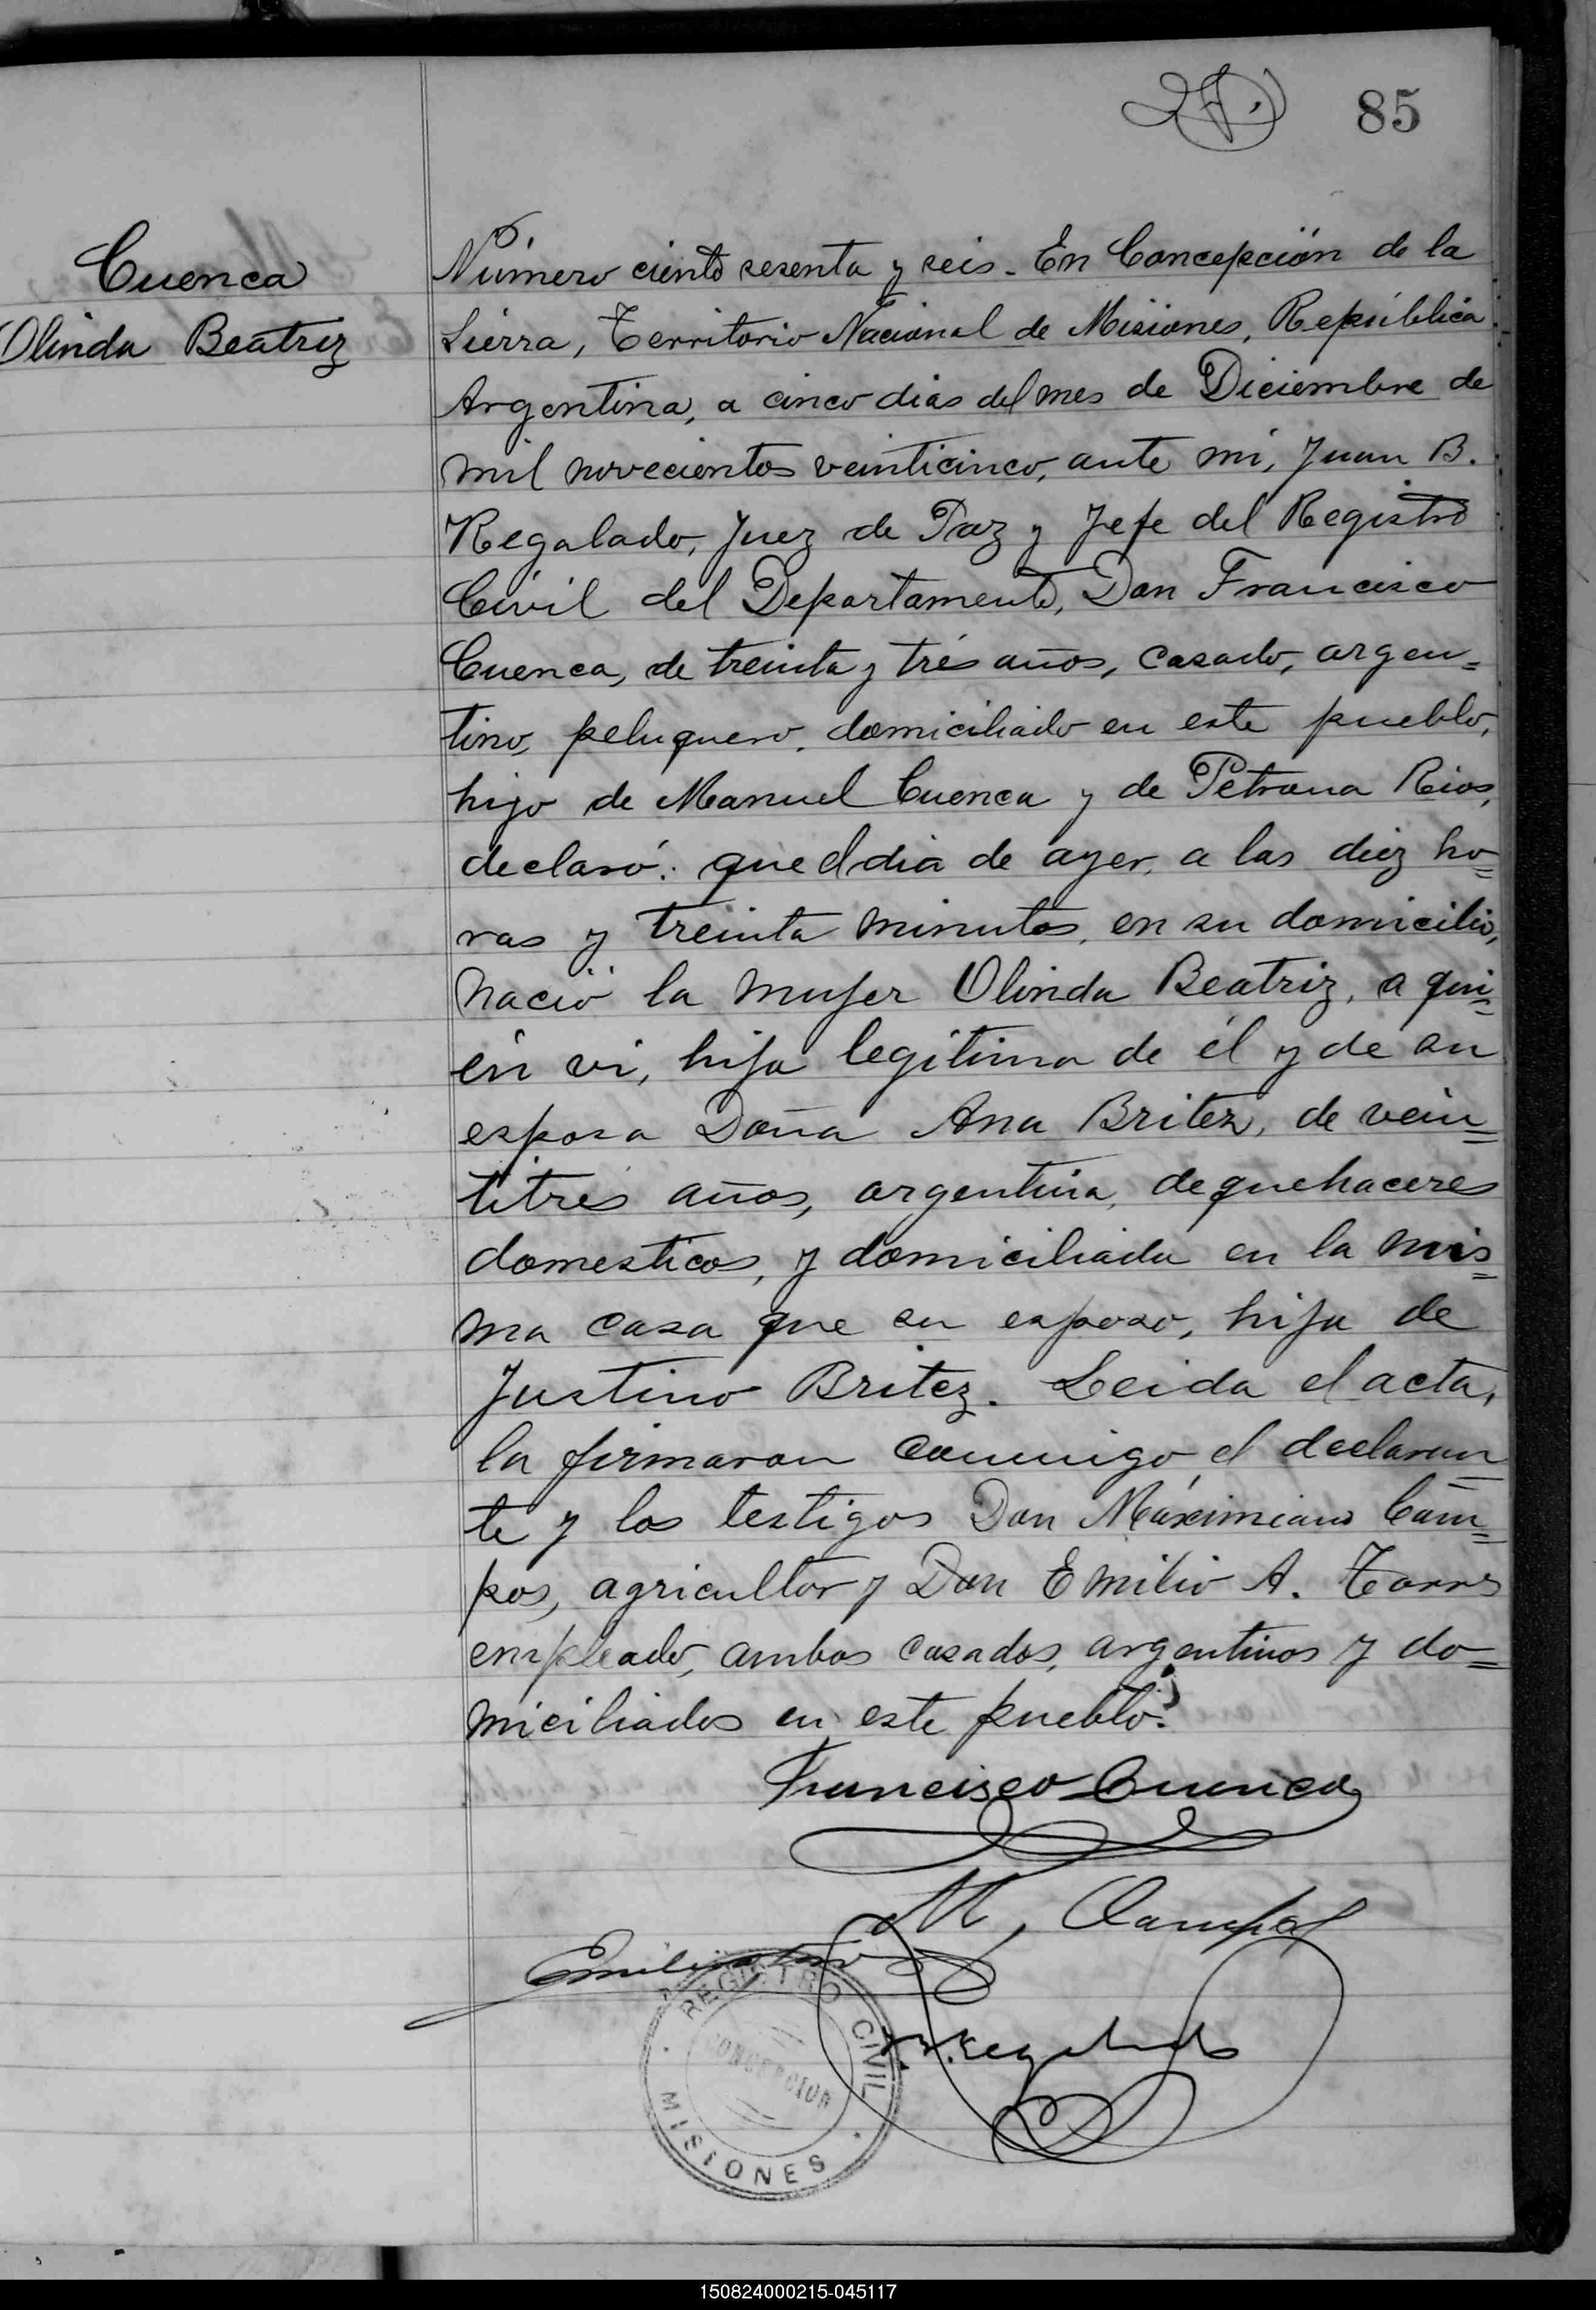 85
Cuenca
Olinda Beatriz
Número ciento sesenta y seis. En Concepción de la
Sierra, Territorio Nacional de Misiones, República
Argentina, a cinco dias del mes de Diciembre de
mil novecientos veinticinco, ante mi, Juan B.
Regalado, Juez de Paz y Jefe del Registro
Civil del Departamento, Don Francisco
Cuenca, de treinta y trés años, casado, argen=
tino, peluquero, domiciliado en este pueblo,
hijo de Manuel Cuenca y de Petrona Rios,
declaró: que el dia de ayer, a las diez ho=
ras y treinta minutos, en su domicilio,
nació la mujer Olinda Beatriz, a qui=
én vi, hija legítima de él y de su
esposa Doña Ana Britez, de vein=
titrés años, argentina, de quehaceres
domesticos, y domiciliada en la mis=
ma casa que su esposo, hija de
Justino Britez. Leida el acta,
la firmaron conmigo, el declaran=
te y los testigos Don Máximiano Cam=
pos, agricultor y Don Emilio A. Torres
empleado, ambos casados, argentinos y do=
miciliados en este pueblo.
Francisco Cuenca
M. Campos
Regalado
REGISTRO CIVIL
CONCEPCION
MISIONES
150824000215-045117